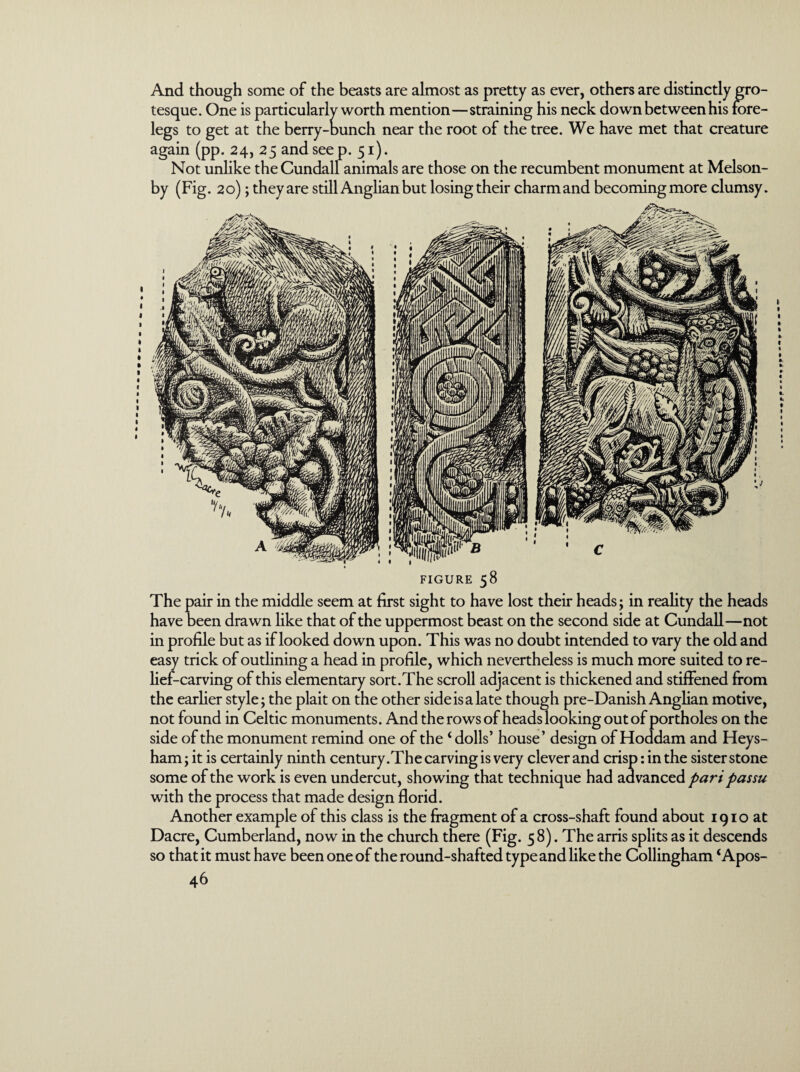 And though some of the beasts are almost as pretty as ever, others are distinctly gro-
tesque. One is particularly worth mention—straining his neck down between his fore-
legs to get at the berry-bunch near the root of the tree. We have met that creature
again (pp. 24, 25 and see p. 51).
Not unlike the Cundall animals are those on the recumbent monument at Melson-
by (Fig. 20); they are still Anglian but losing their charm and becoming more clumsy.
Dacre
A
B
C
FIGURE 58
The pair in the middle seem at first sight to have lost their heads; in reality the heads
have been drawn like that of the uppermost beast on the second side at Cundall—not
in profile but as if looked down upon. This was no doubt intended to vary the old and
easy trick of outlining a head in profile, which nevertheless is much more suited to re-
lief-carving of this elementary sort. The scroll adjacent is thickened and stiffened from
the earlier style; the plait on the other side is a late though pre-Danish Anglian motive,
not found in Celtic monuments. And the rows of heads looking out of portholes on the
side of the monument remind one of the ‘dolls’ house’ design of Hoddam and Heys-
ham; it is certainly ninth century. The carving is very clever and crisp: in the sister stone
some of the work is even undercut, showing that technique had advanced pari passu
with the process that made design florid.
Another example of this class is the fragment of a cross-shaft found about 1910 at
Dacre, Cumberland, now in the church there (Fig. 58). The arris splits as it descends
so that it must have been one of the round-shafted type and like the Collingham ‘Apos-
46